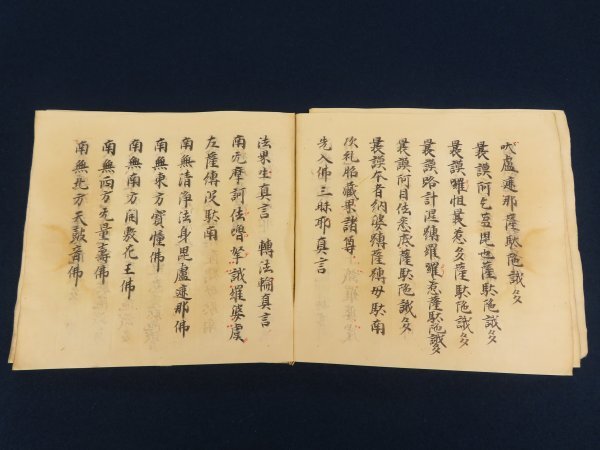 吠盧遮那薩駄陁誐多
曩謨阿乞蒭毘也薩駄陁誐多
曩謨囉怛曩惹多薩駄陁誐多
曩謨路計湿縛羅羅惹薩駄陁誐多
曩謨阿目佉悉底薩駄陁誐多
曩謨尒者納婆縛薩縛母駄南
次礼胎藏界諸尊
先入佛三昧耶真言
法界生真言 轉法輪真言
南无摩訶佉嚕 拏誐羅婆虞
左薩傳没駄南
南無清浄法身毘盧遮那佛
南無東方寳幢佛
南無南方開敷花王佛
南無西方无量壽佛
南無北方天鼓音佛